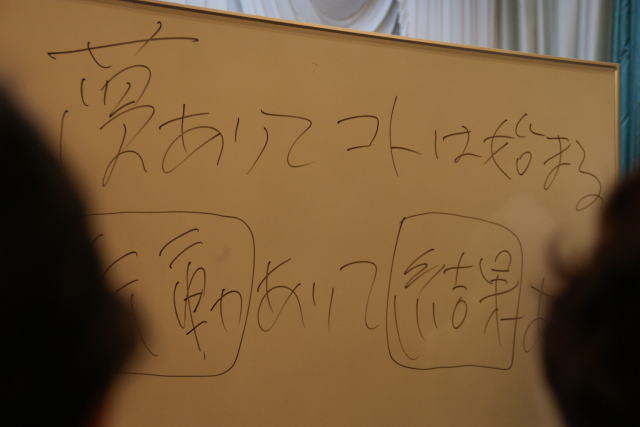 夢ありてコトは始まる
動ありて結果あ